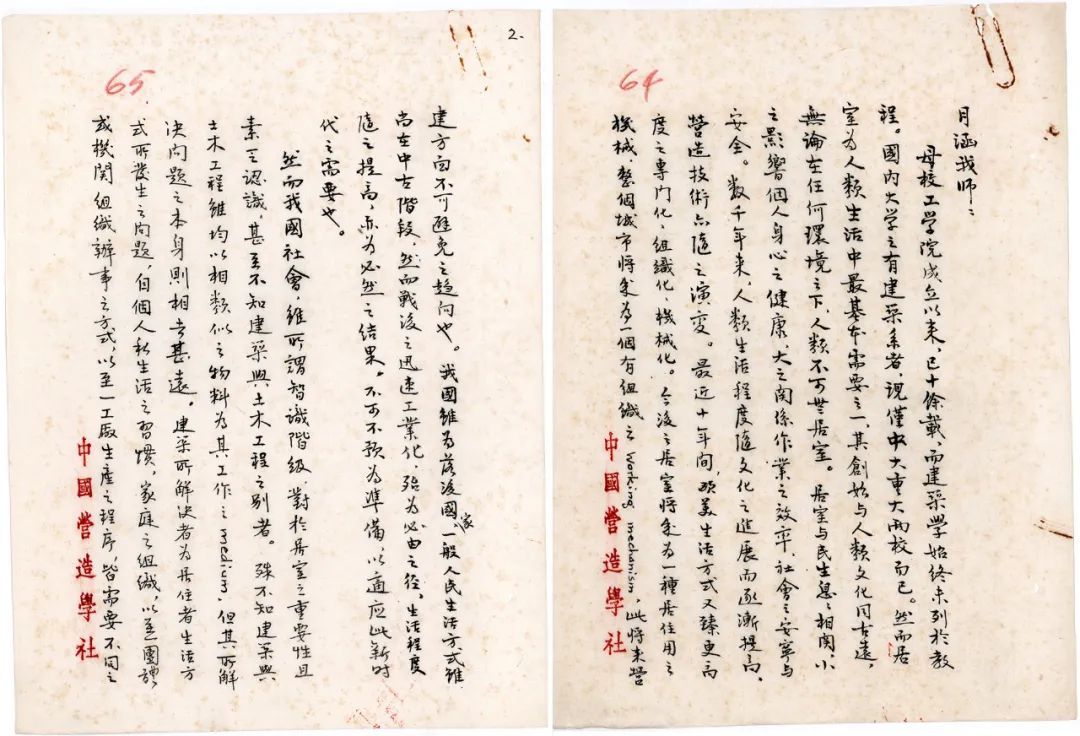 64
月涵我師：
母校工学院成立以来，已十餘載，而建築学始終未列於教
程。國內大学之有建築系者，現僅中大重大兩校而已。然而居
室为人類生活中最基本需要之一，其創始与人類文化同古遠，
無論在任何環境之下，人類不可無居室。居室与民生息々相関，小
之影響個人身心之健康，大之関係作業之效率，社會之安寧与
安全。数千年来，人類生活程度隨文化之進展而逐漸提高，
營造技術亦隨之演變。最近十年間，歐美生活方式又臻更高
度之専門化，組織化，機械化。今後之居室將成为一種居住用之
機械，整個城市將成为一個有組織之 working mechanism，此將来營
中國營造學社
2.
65
建方面不可避免之趨向也。我國雖为落後國家，一般人民生活方式雖
尚在中古階段，然而戰後之迅速工業化，殆为必由之徑，生活程度
隨之提高，亦为必然之結果，不可不預为準備，以適应此新時
代之需要也。
然而我國社會，雖所謂智識階級，對於居室之重要性且
素乏認識，甚至不知建築與土木工程之别者。殊不知建築與
土木工程雖均以相類似之物料为其工作之 medium，但其所解
決問題之本身則相去甚遠。建築所解決者为居住者生活方
式所發生之問題，自個人私生活之習慣，家庭之組織，以至團體
或機関組織辦事之方式以至一工廠生產之程序，皆需要不同之
中國營造學社